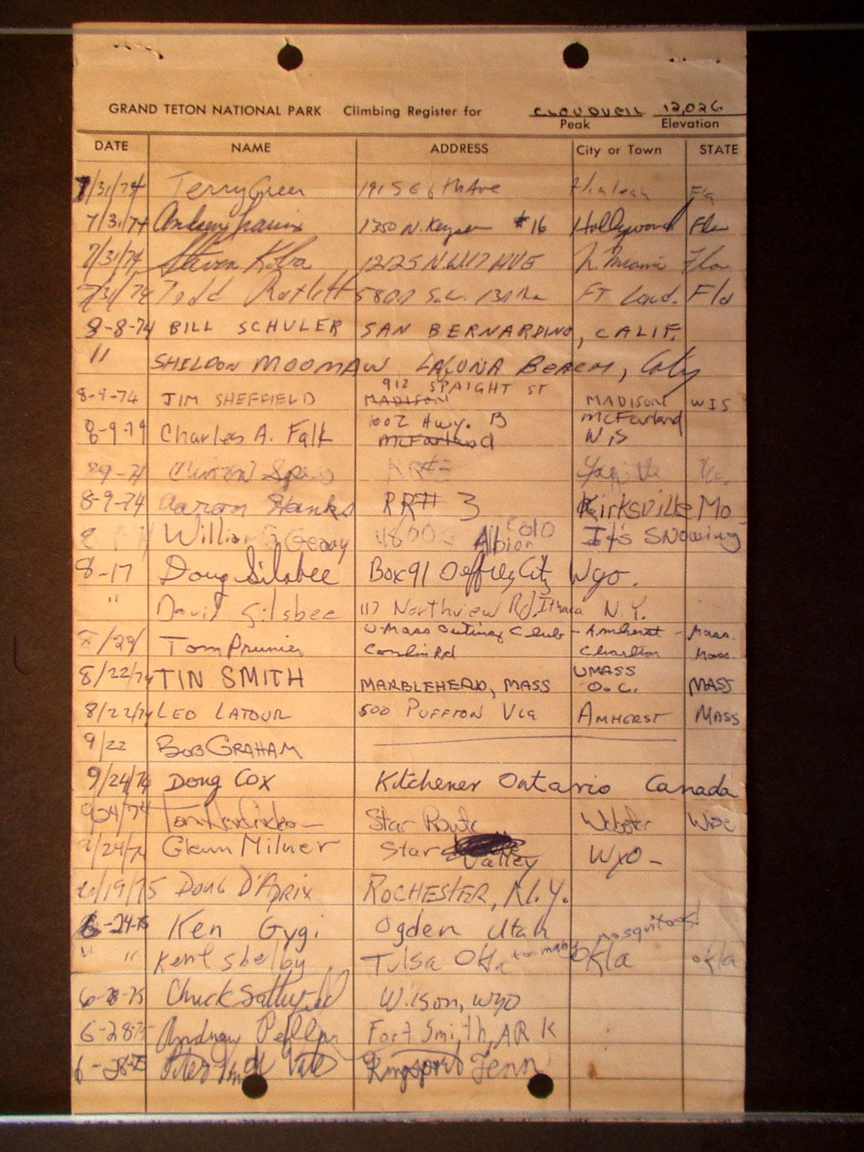 GRAND TETON NATIONAL PARK Climbing Register for CLOUDVEIL 12,026
Peak Elevation
DATE NAME ADDRESS City or Town STATE
7/31/74 Terry Greer Ave Hialeah Fla
7/31/74 1350 N. #16 Hollywood Fla
7/31/74 Steven 12125 NW 17 AVE N. Miami Fla
7/31/74 Todd FT Laud. Fla
8-8-74 BILL SCHULER SAN BERNARDINO, CALIF.
" SHELDON MOOMAW LAGUNA BEACH,
912 SPAIGHT ST
8-9-74 JIM SHEFFIELD MADISON MADISON WIS
1002 Hwy. B McFarland
8-9-74 Charles A. Falk McFarland WIS
Clinton RR#3
8-9-74 Aaron Hanks RR# 3 Kirksville Mo
William Albion Colo It's Snowing
8-17 Doug Silsbee Box 91 Jeffrey City Wyo.
" David Silsbee 117 Northview Rd, Ithaca N.Y.
U-Mass Outing Club - Amherst - Mass.
Tom Prunier Conlin Rd Charlton Mass.
8/22/74 TIN SMITH MARBLEHEAD, MASS UMASS O.C. MASS
8/22/74 LEO LATOUR 500 PUFFTON Vlg AMHERST MASS
9/22 BOB GRAHAM
9/24/74 Doug Cox Kitchener Ontario Canada
9/24/74 Star Route Webster
9/24/74 Glenn Milner Star Valley Wyo-
6/19/75 DOUG D'APRIX ROCHESTER, N.Y.
6-24-75 Ken Gygi Ogden Utah
" " Kent Shelby Tulsa Okla too many mosquitoes! Okla okla
Chuck Wilson, wyo
6-28-75 Andrew Fort Smith, ARK
6-28-75 Peter Kingsport Tenn